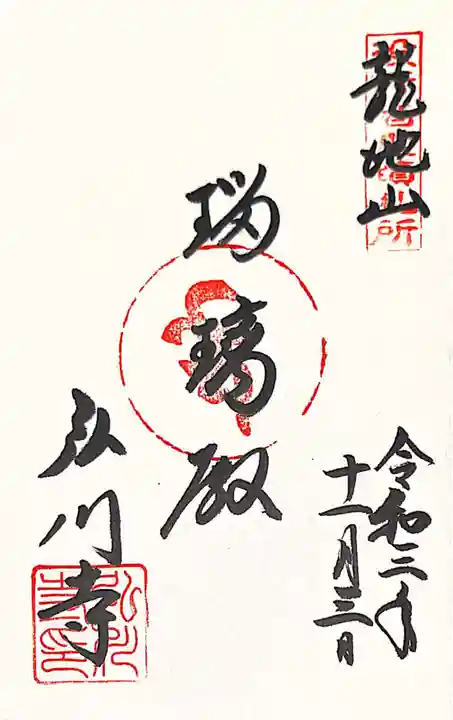 龍池山
瑠璃殿
令和三年
十一月三日
弘川寺